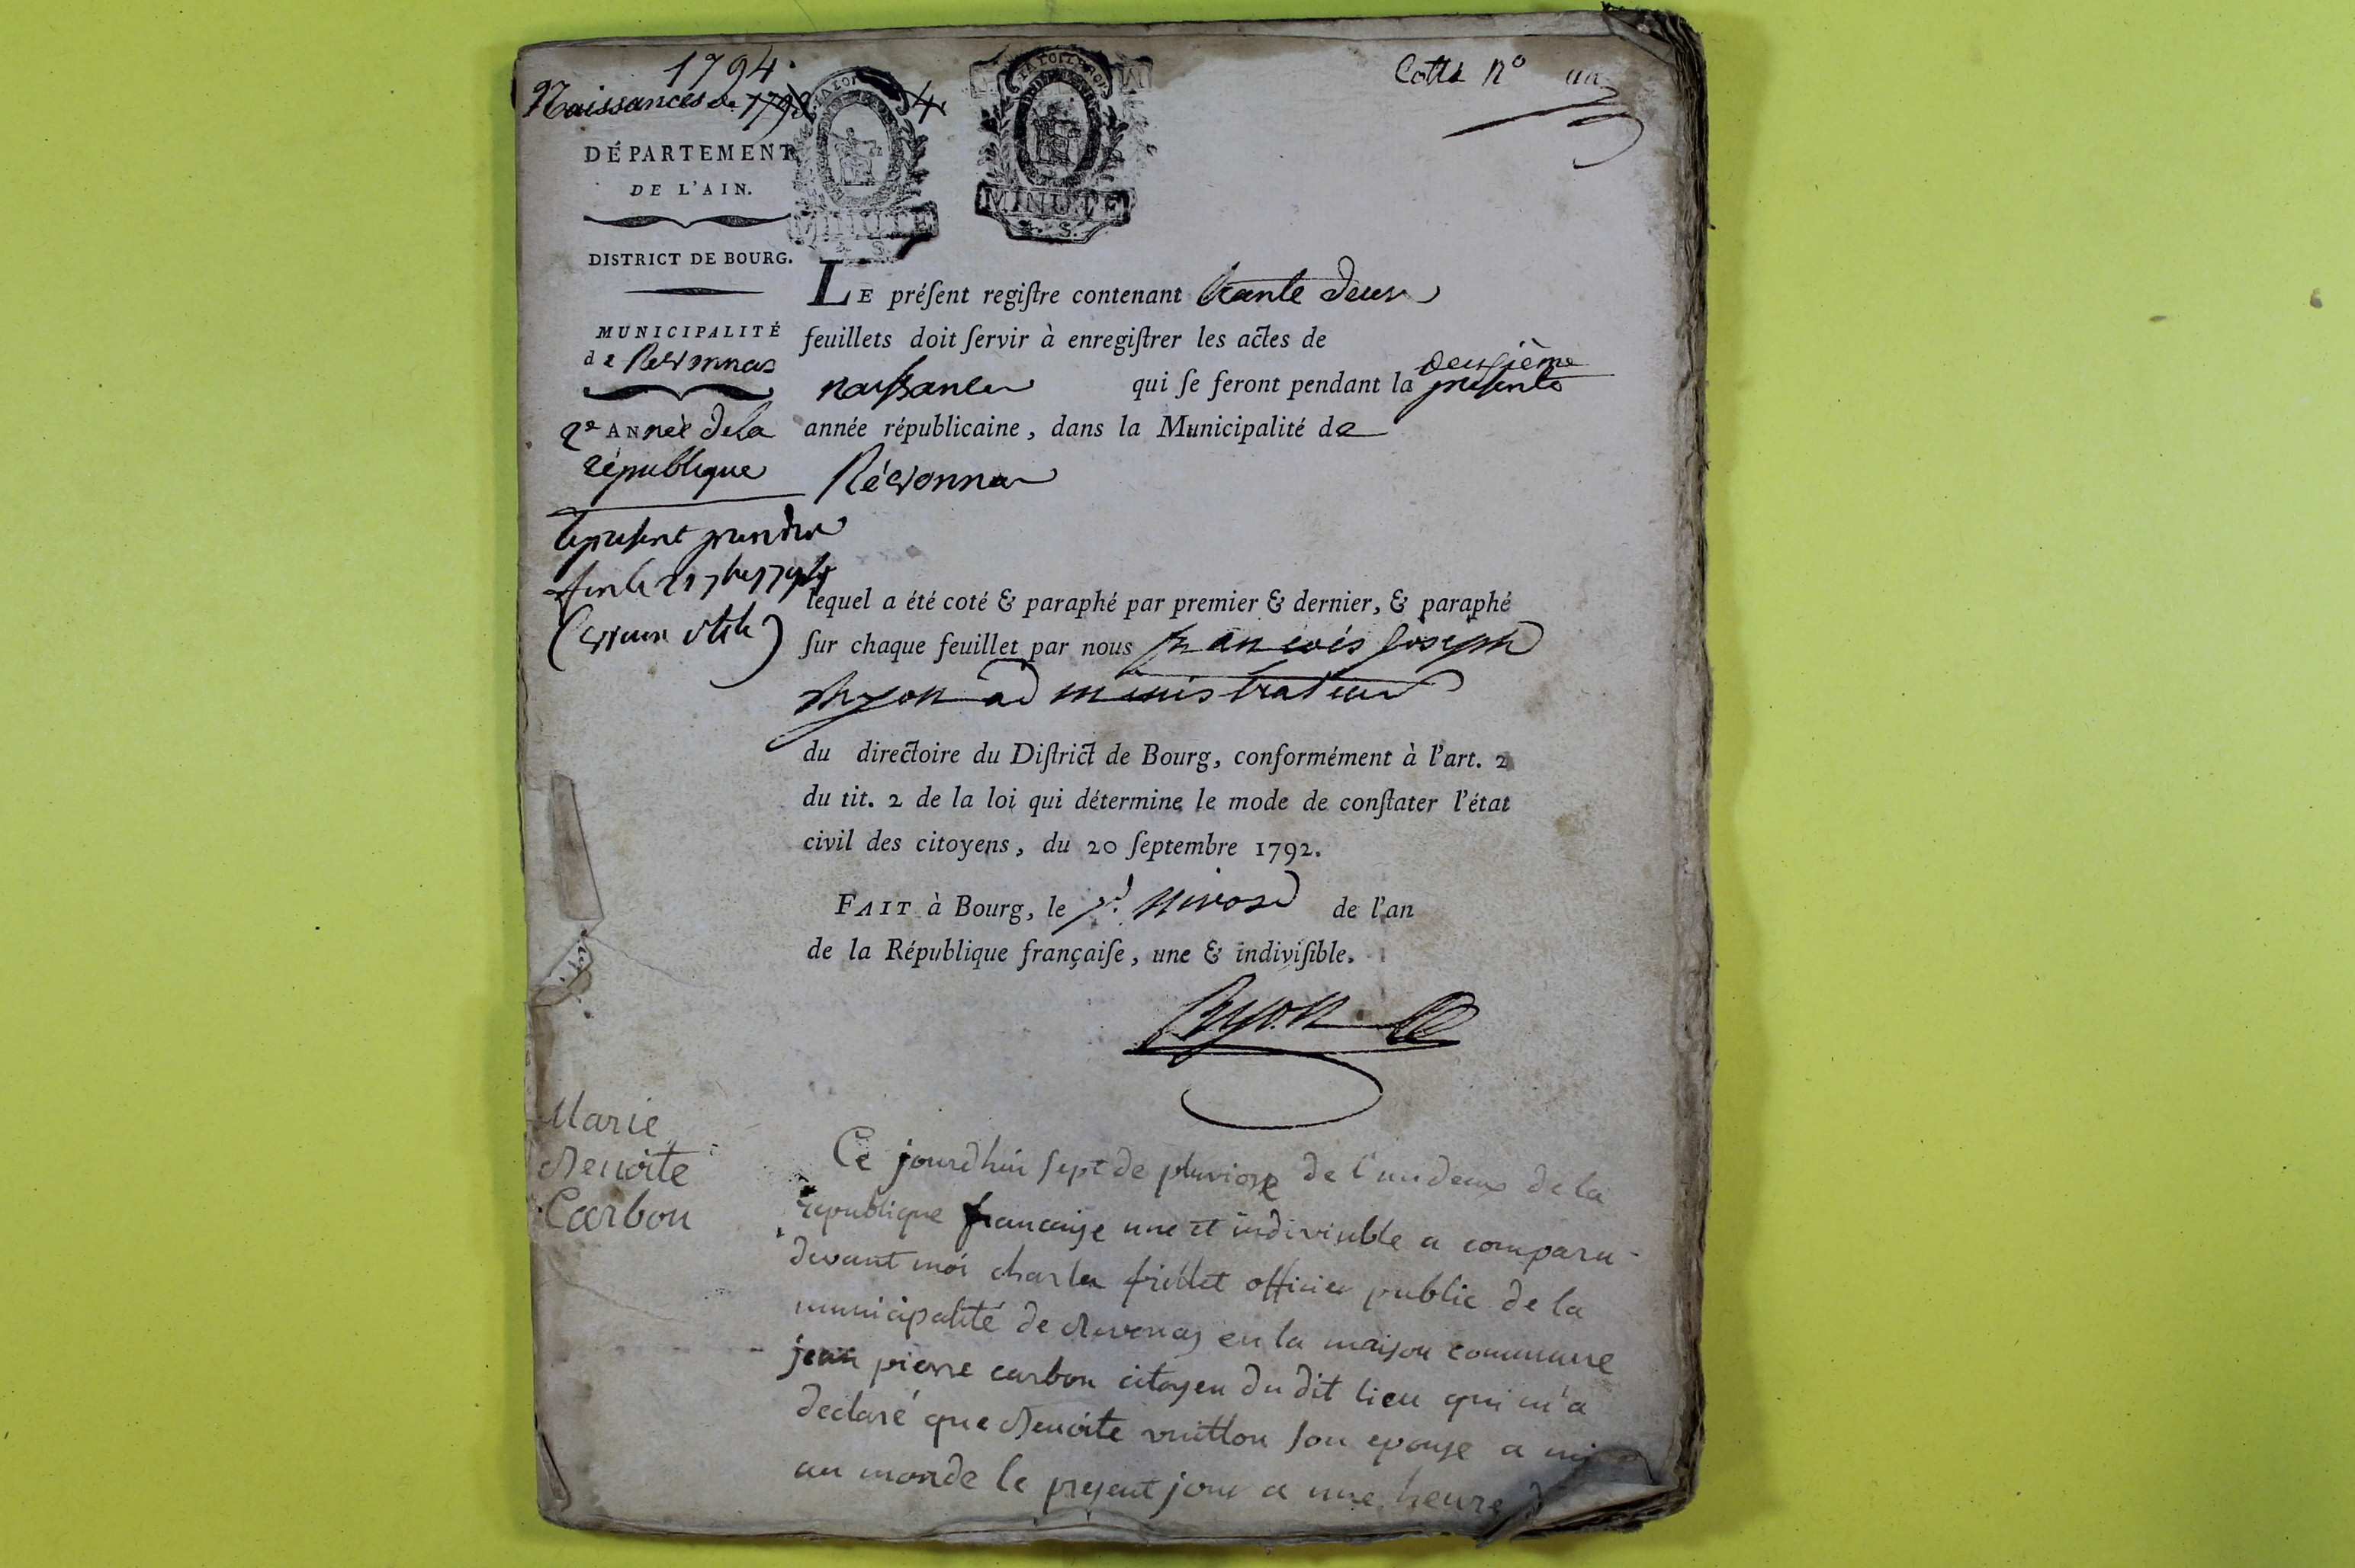 1794.
Naissances de 1793 4
Cotte n° un
DÉPARTEMENT
DE L'AIN.
DISTRICT DE BOURG.
MUNICIPALITÉ
de Revonnas
2e ANNée de la
république
le présent prendra
fin le 21 7bre 1794
(vieux stile)
LA LOI LE ROI
MINUTE
4. S.
LE préſent regiſtre contenant trante deux
feuillets doit ſervir à enregiſtrer les actes de
naissance qui ſe feront pendant la deuxième
présente
année républicaine, dans la Municipalité de
Révonnas
lequel a été coté & paraphé par premier & dernier, & paraphé
ſur chaque feuillet par nous françois joseph
administrateur
du directoire du Diſtrict de Bourg, conformément à l'art. 2
du tit. 2 de la loi qui détermine le mode de conſtater l'état
civil des citoyens, du 20 ſeptembre 1792.
FAIT à Bourg, le nivose de l'an
de la République françaiſe, une & indiviſible.
Marie
Benoite
Carbon
Ce jourdhui sept de pluviose de l'an deux de la
republique francaise une et indivisible a comparu
devant moi charles frillet officier public de la
municipalité de Revonas en la maison commune
jean pierre carbon citoyen du dit lieu qui m'a
declaré que Benoite vuitton son epouse a mis
au monde le present jour a une heure d